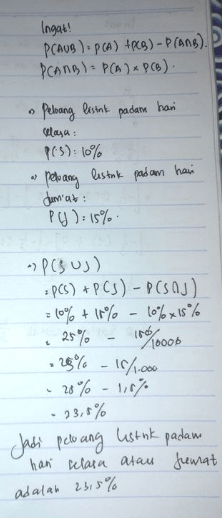 Ingat!
P(AUB) = P(A) + P(B) - P(A∩B).
P(A∩B) = P(A) x P(B).
→ Peluang listrik padam hari
selasa :
P(S) = 10%
→ Peluang listrik padam hari
Jum'at :
P(J) = 15%.
→ P(S U J)
= P(S) + P(J) - P(S∩J)
= 10% + 15% - 10% x 15%
= 25% - 150/10000
= 25% - 15/1.000
= 25% - 1,5%
= 23,5%
Jadi peluang listrik padam
hari selasa atau Jum'at
adalah 23,5%